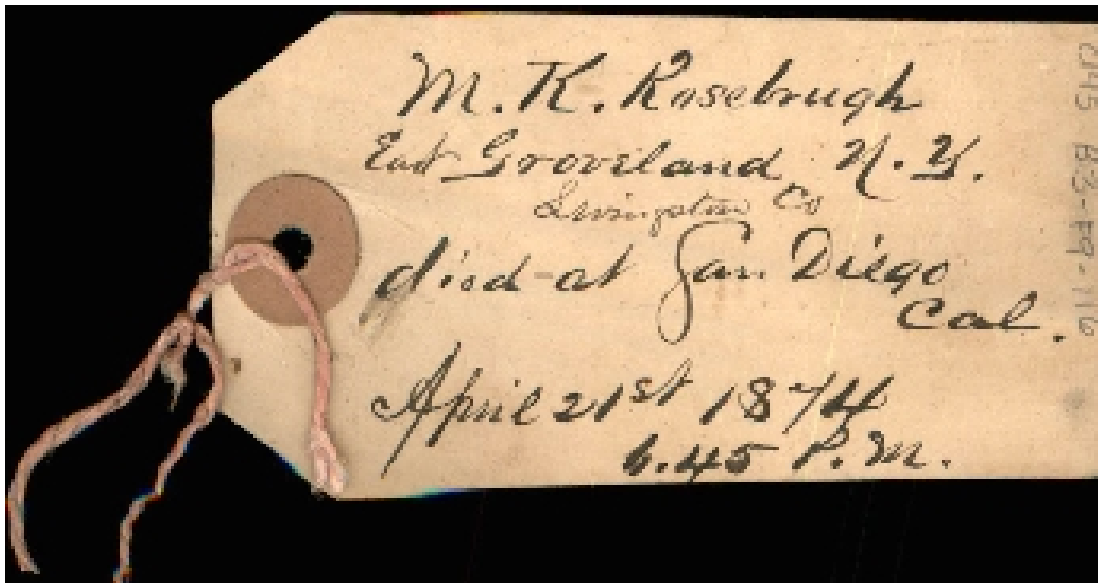 M. K. Rosebrugh
East Groveland N.Y.
Livingston Co
died at San Diego
Cal.
April 21st 1874
6.45 P.M.